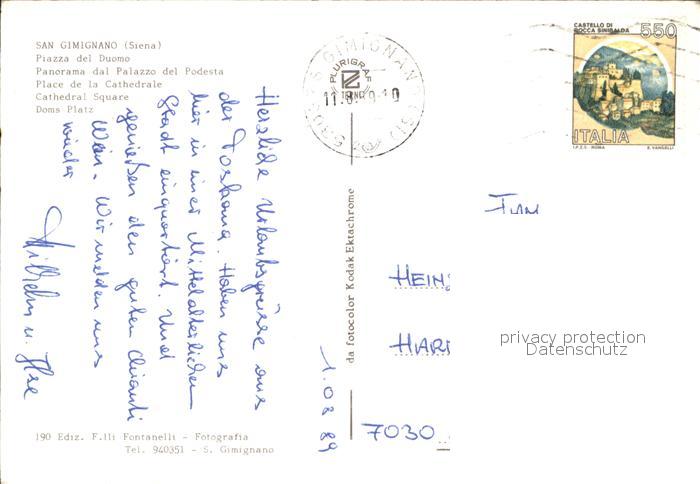 SAN GIMIGNANO (Siena)
Piazza del Duomo
Panorama dal Palazzo del Podesta
Place de la Cathedrale
Cathedral Square
Doms Platz
Herzliche Urlaubsgrüsse aus
der Toskana. Haben uns
hier in einer Mittelalterlichen
Stadt einquartiert. Und
genießen den guten Chianti
Wein. Wir melden uns
wieder
Wilhelm u. Ilse
1.08.89
190 Ediz. F.lli Fontanelli - Fotografia
Tel. 940351 - S. Gimignano
da fotocolor Kodak Ektachrome
PLURIGRAF
S. GIMIGNANO (SI)
CASTELLO DI
ROCCA SINIBALDA
550
ITALIA
I.P.Z.S. - ROMA
E. VANGELLI
HEIN
HARD
7030
privacy protection
Datenschutz